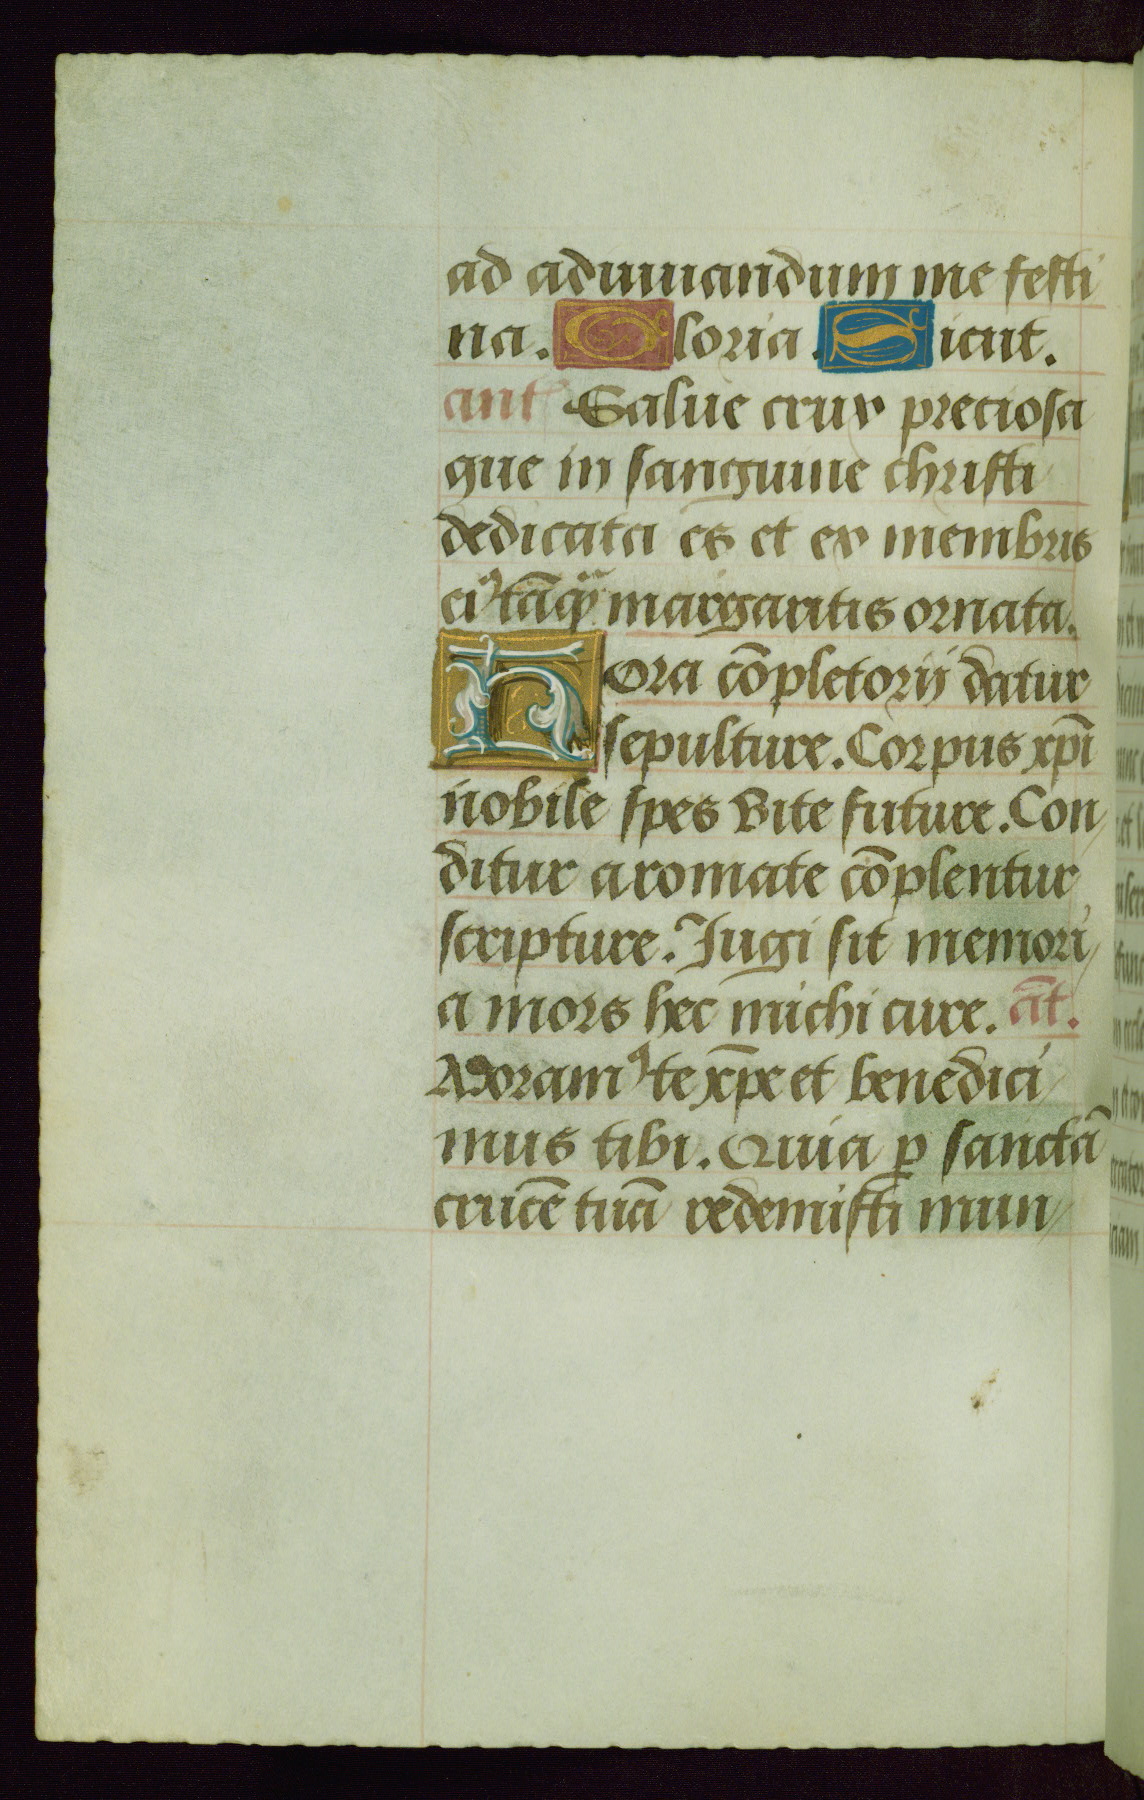 ad adiuuandum me festi
na. Gloria. Sicut.
ant Salue crux preciosa
que in sanguine christi
dedicata es et ex membris
eiꝰ tāqͣ margaritis ornata.
Hora cōpletorij datur
sepulture. Corpus xp̄i
nobile spes vite future. Con
ditur aromate cōplentur
scripture. Jugi sit memori
a mors hec michi cure. ān̄t.
Adoramꝰ te xp̄e et benedici
mus tibi. Quia ꝑ sanctā
crucē tuā redemisti mun